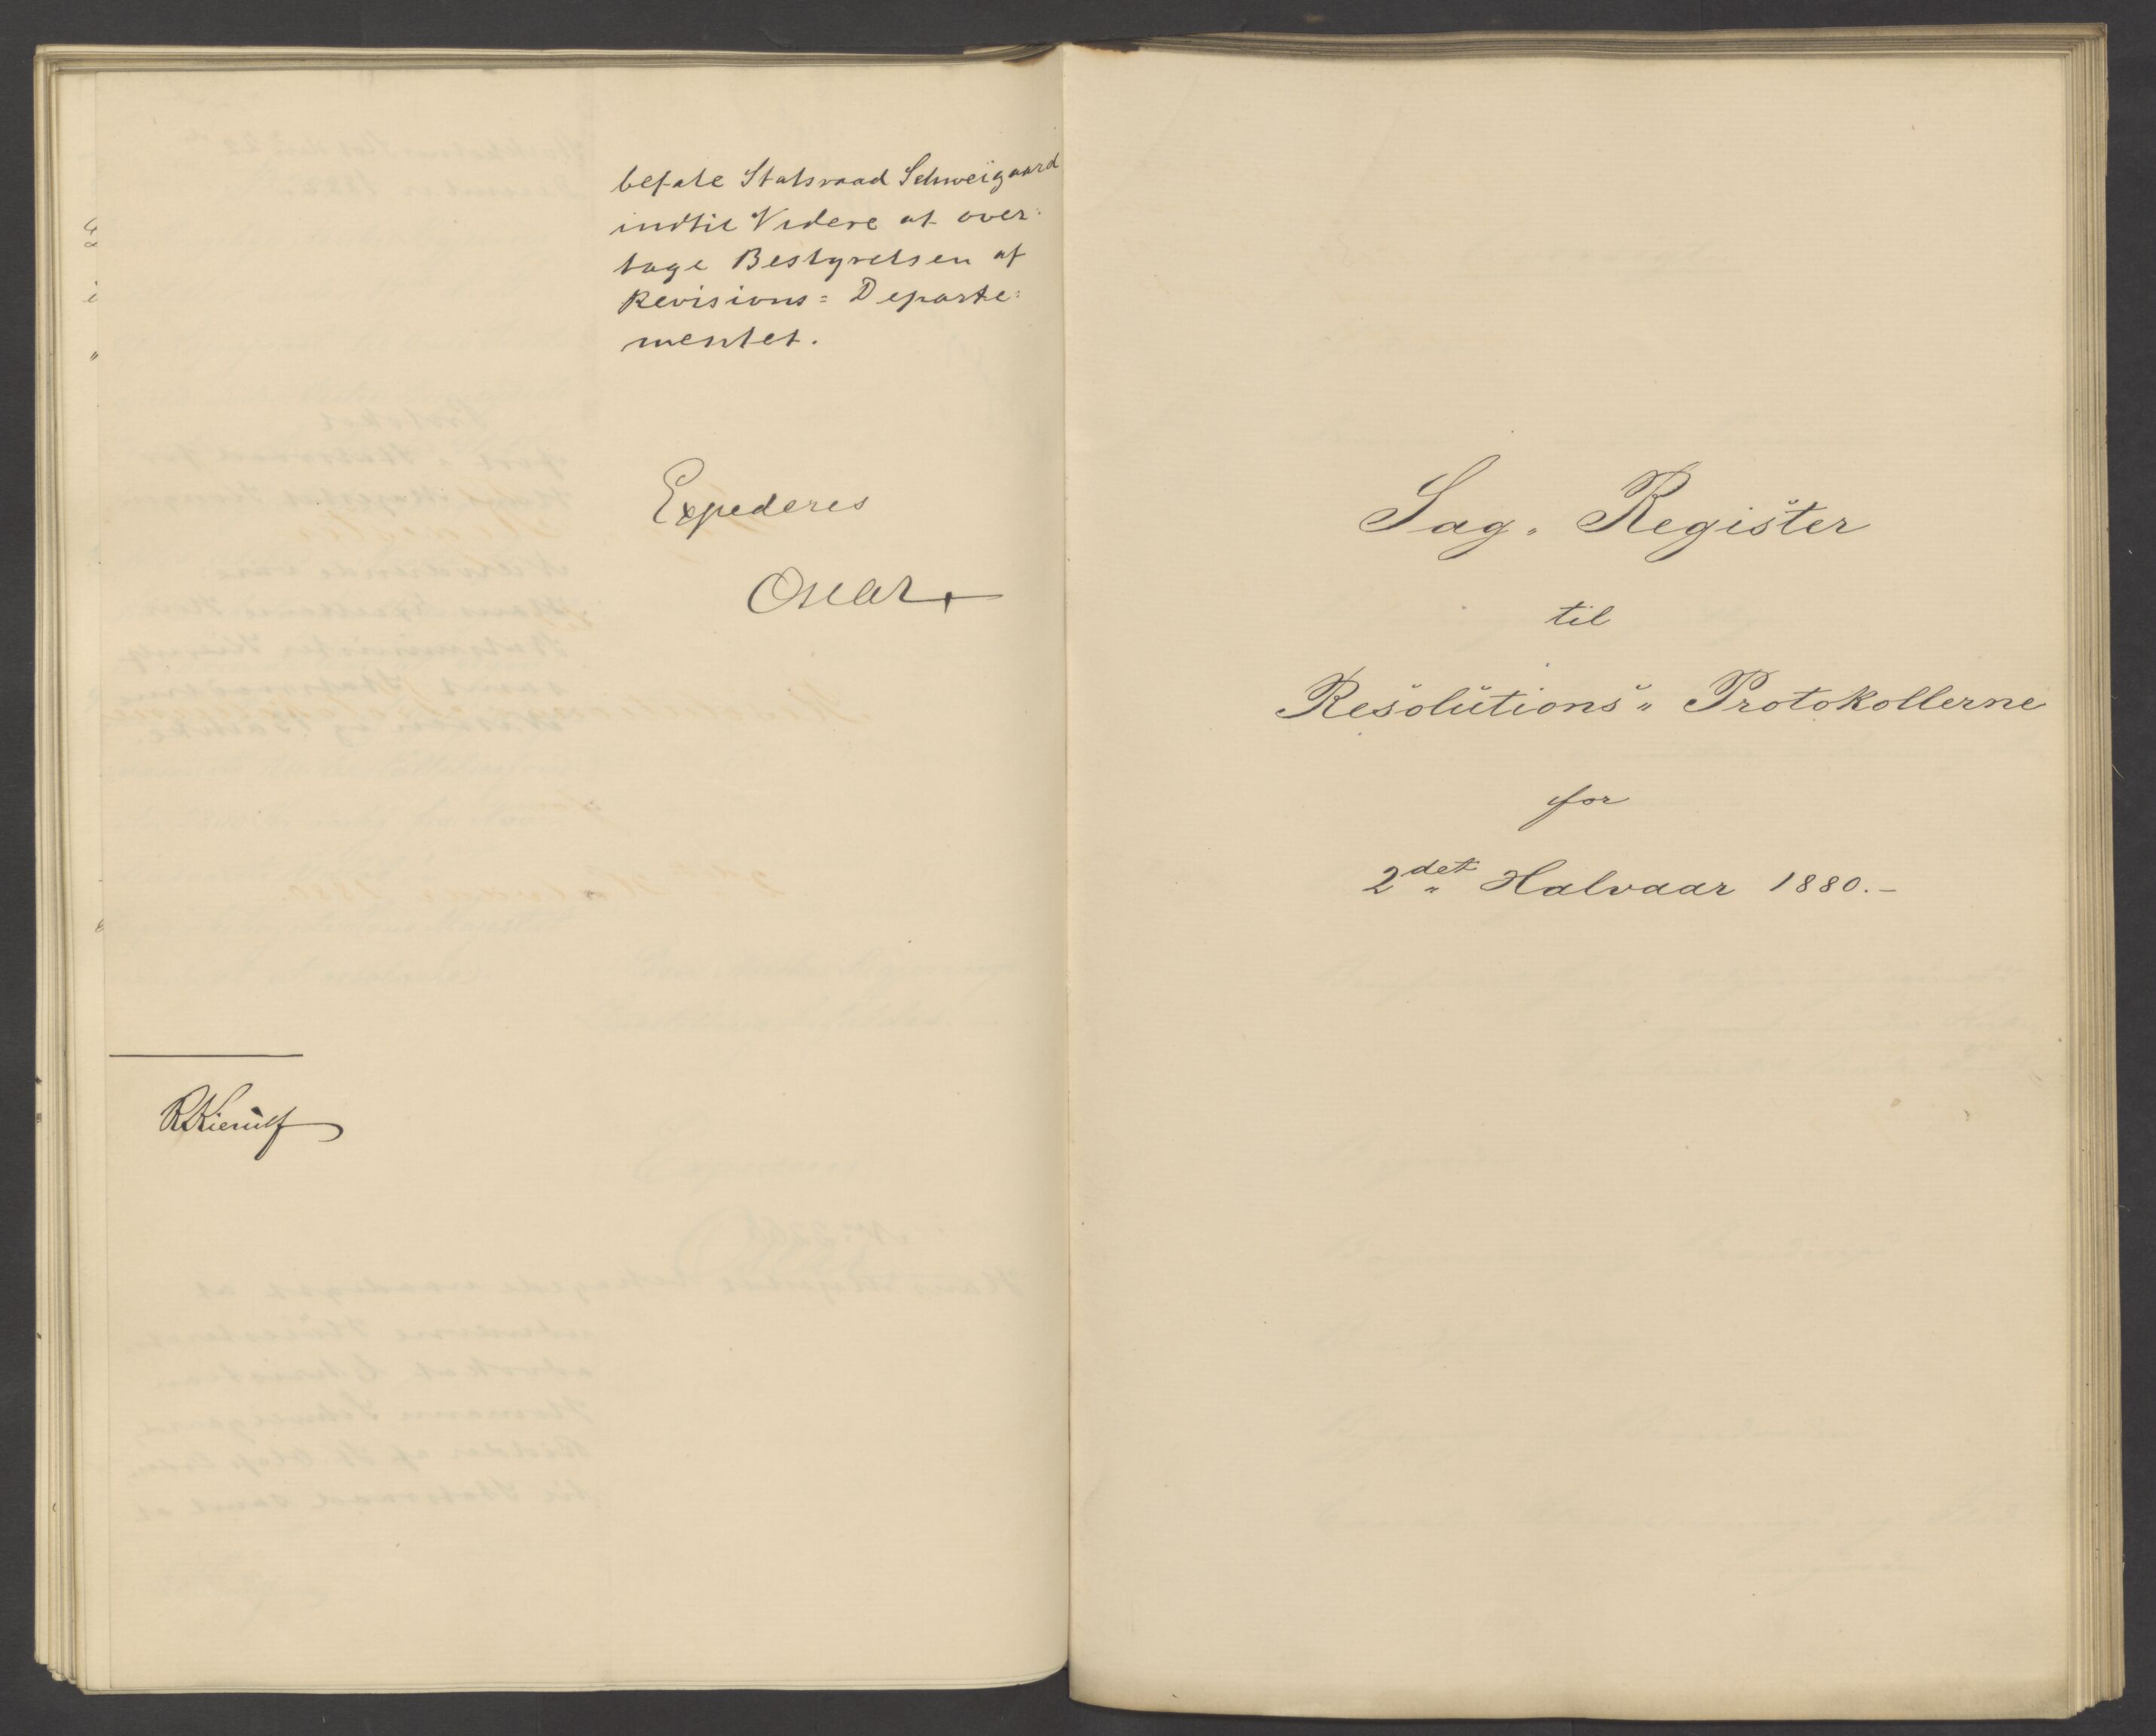 befale Statsraad Schweigaard
indtil Videre at over=
tage Bestyrelsen af
Revisions=Departe=
mentet.
Expederes
Oscar
RKierulf
Sag„ Register
til
Resolutions„ Protokollerne
for
2det Halvaar 1880.-